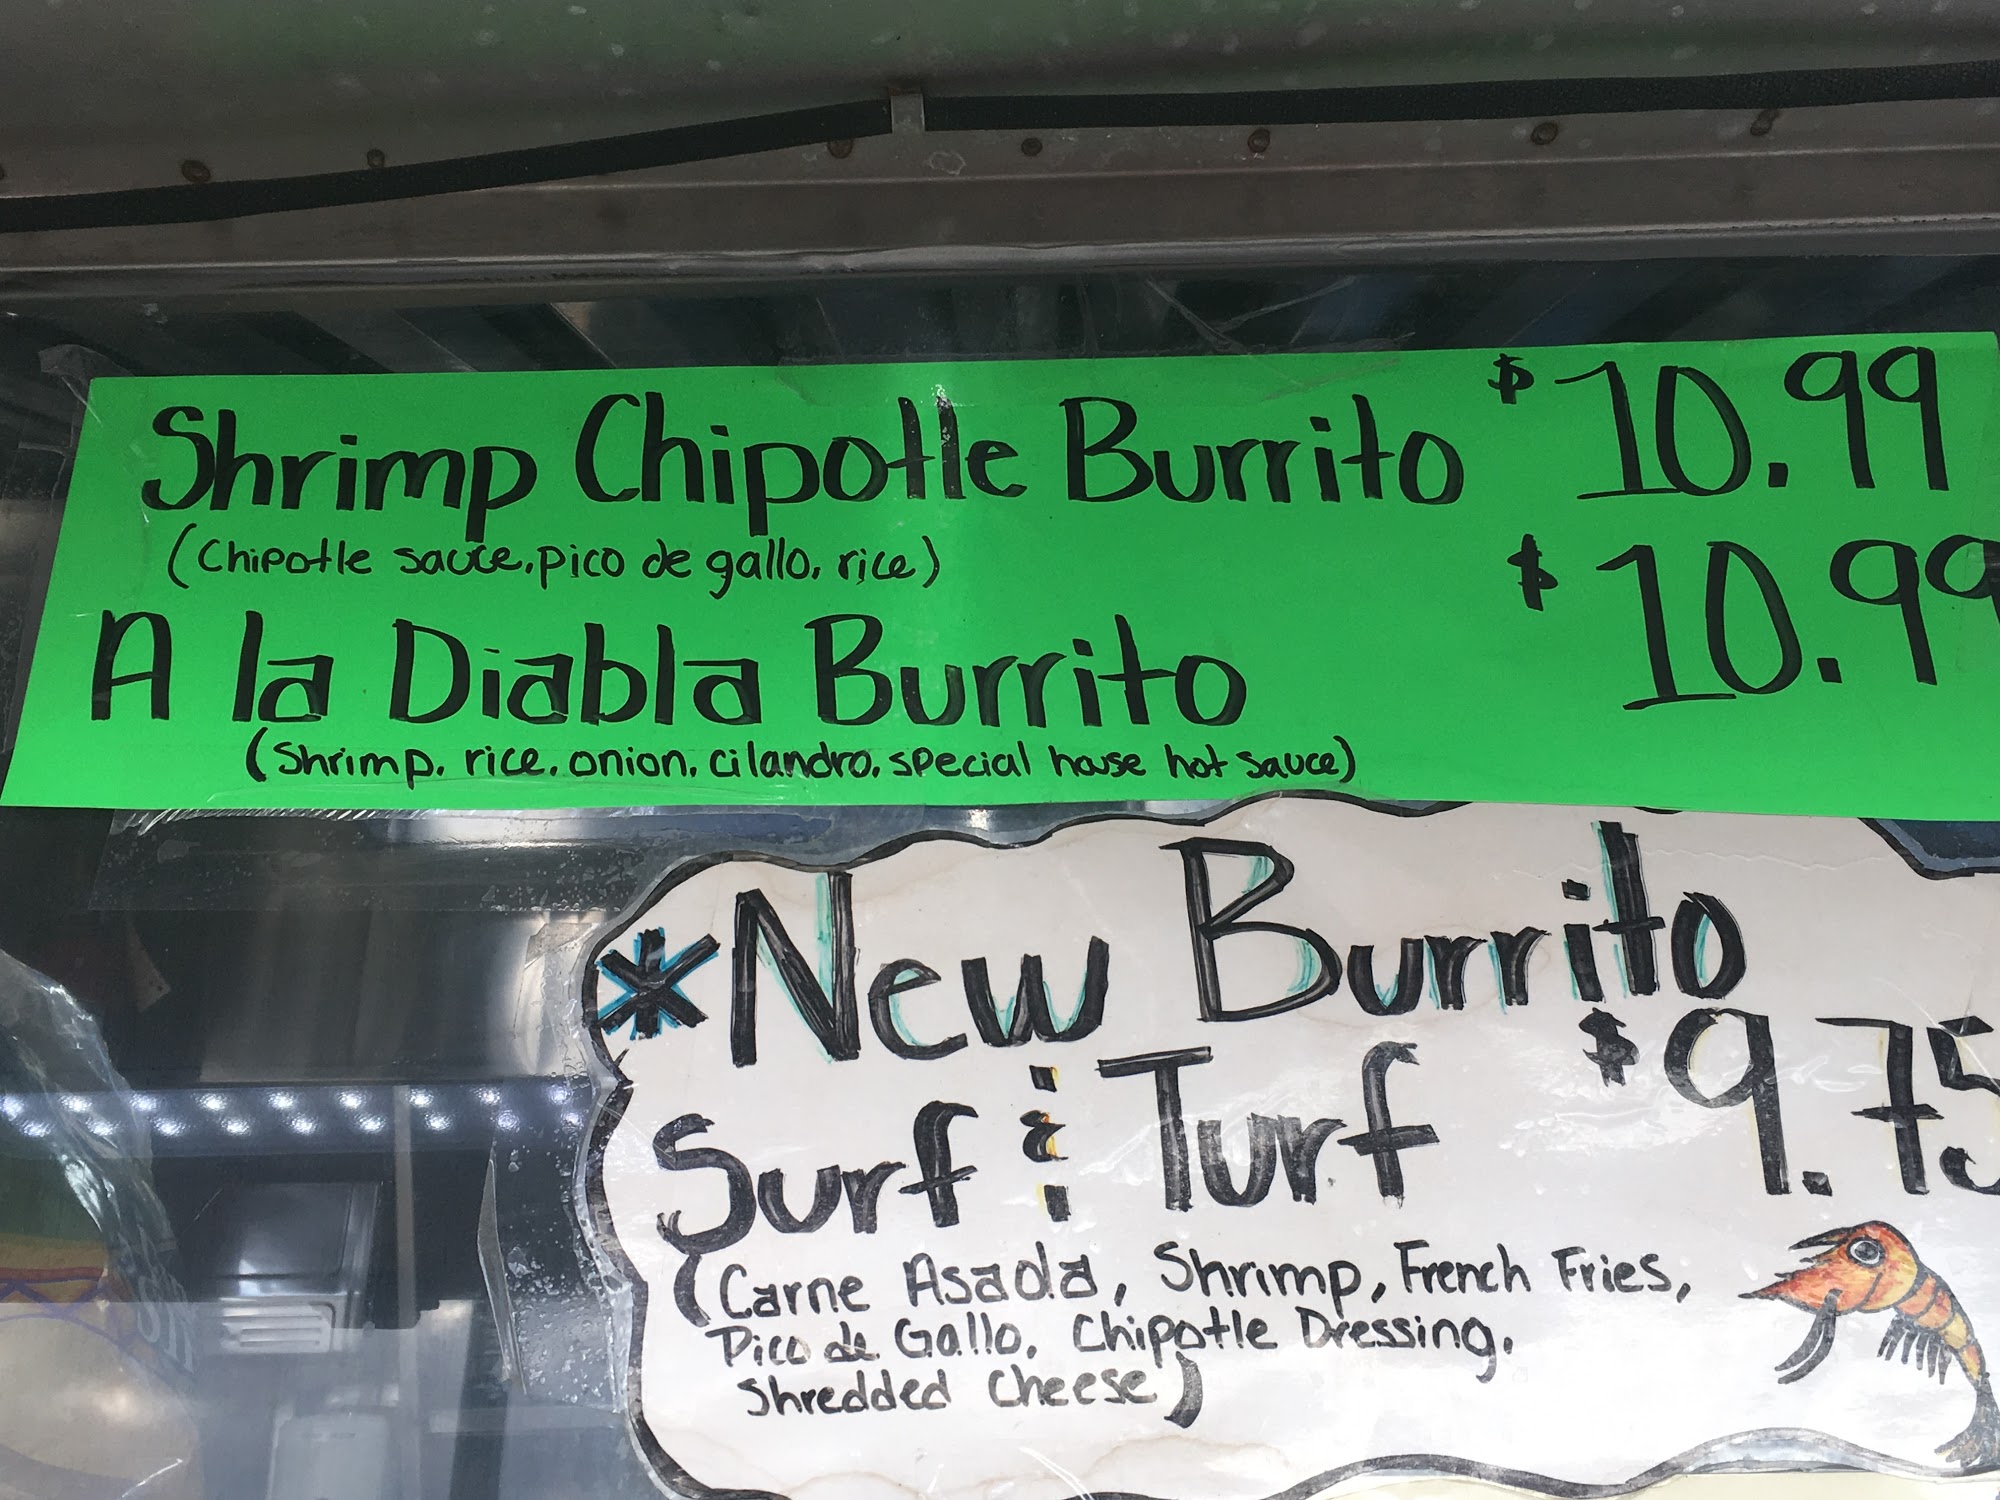 Shrimp Chipotle Burrito $10.99
(Chipotle sauce, pico de gallo, rice)
A la Diabla Burrito $10.99
(Shrimp, rice, onion, cilandro, special house hot sauce)
*New Burrito
Surf & Turf $9.75
(Carne Asada, Shrimp, French Fries,
Pico de Gallo, Chipotle Dressing,
Shredded Cheese)